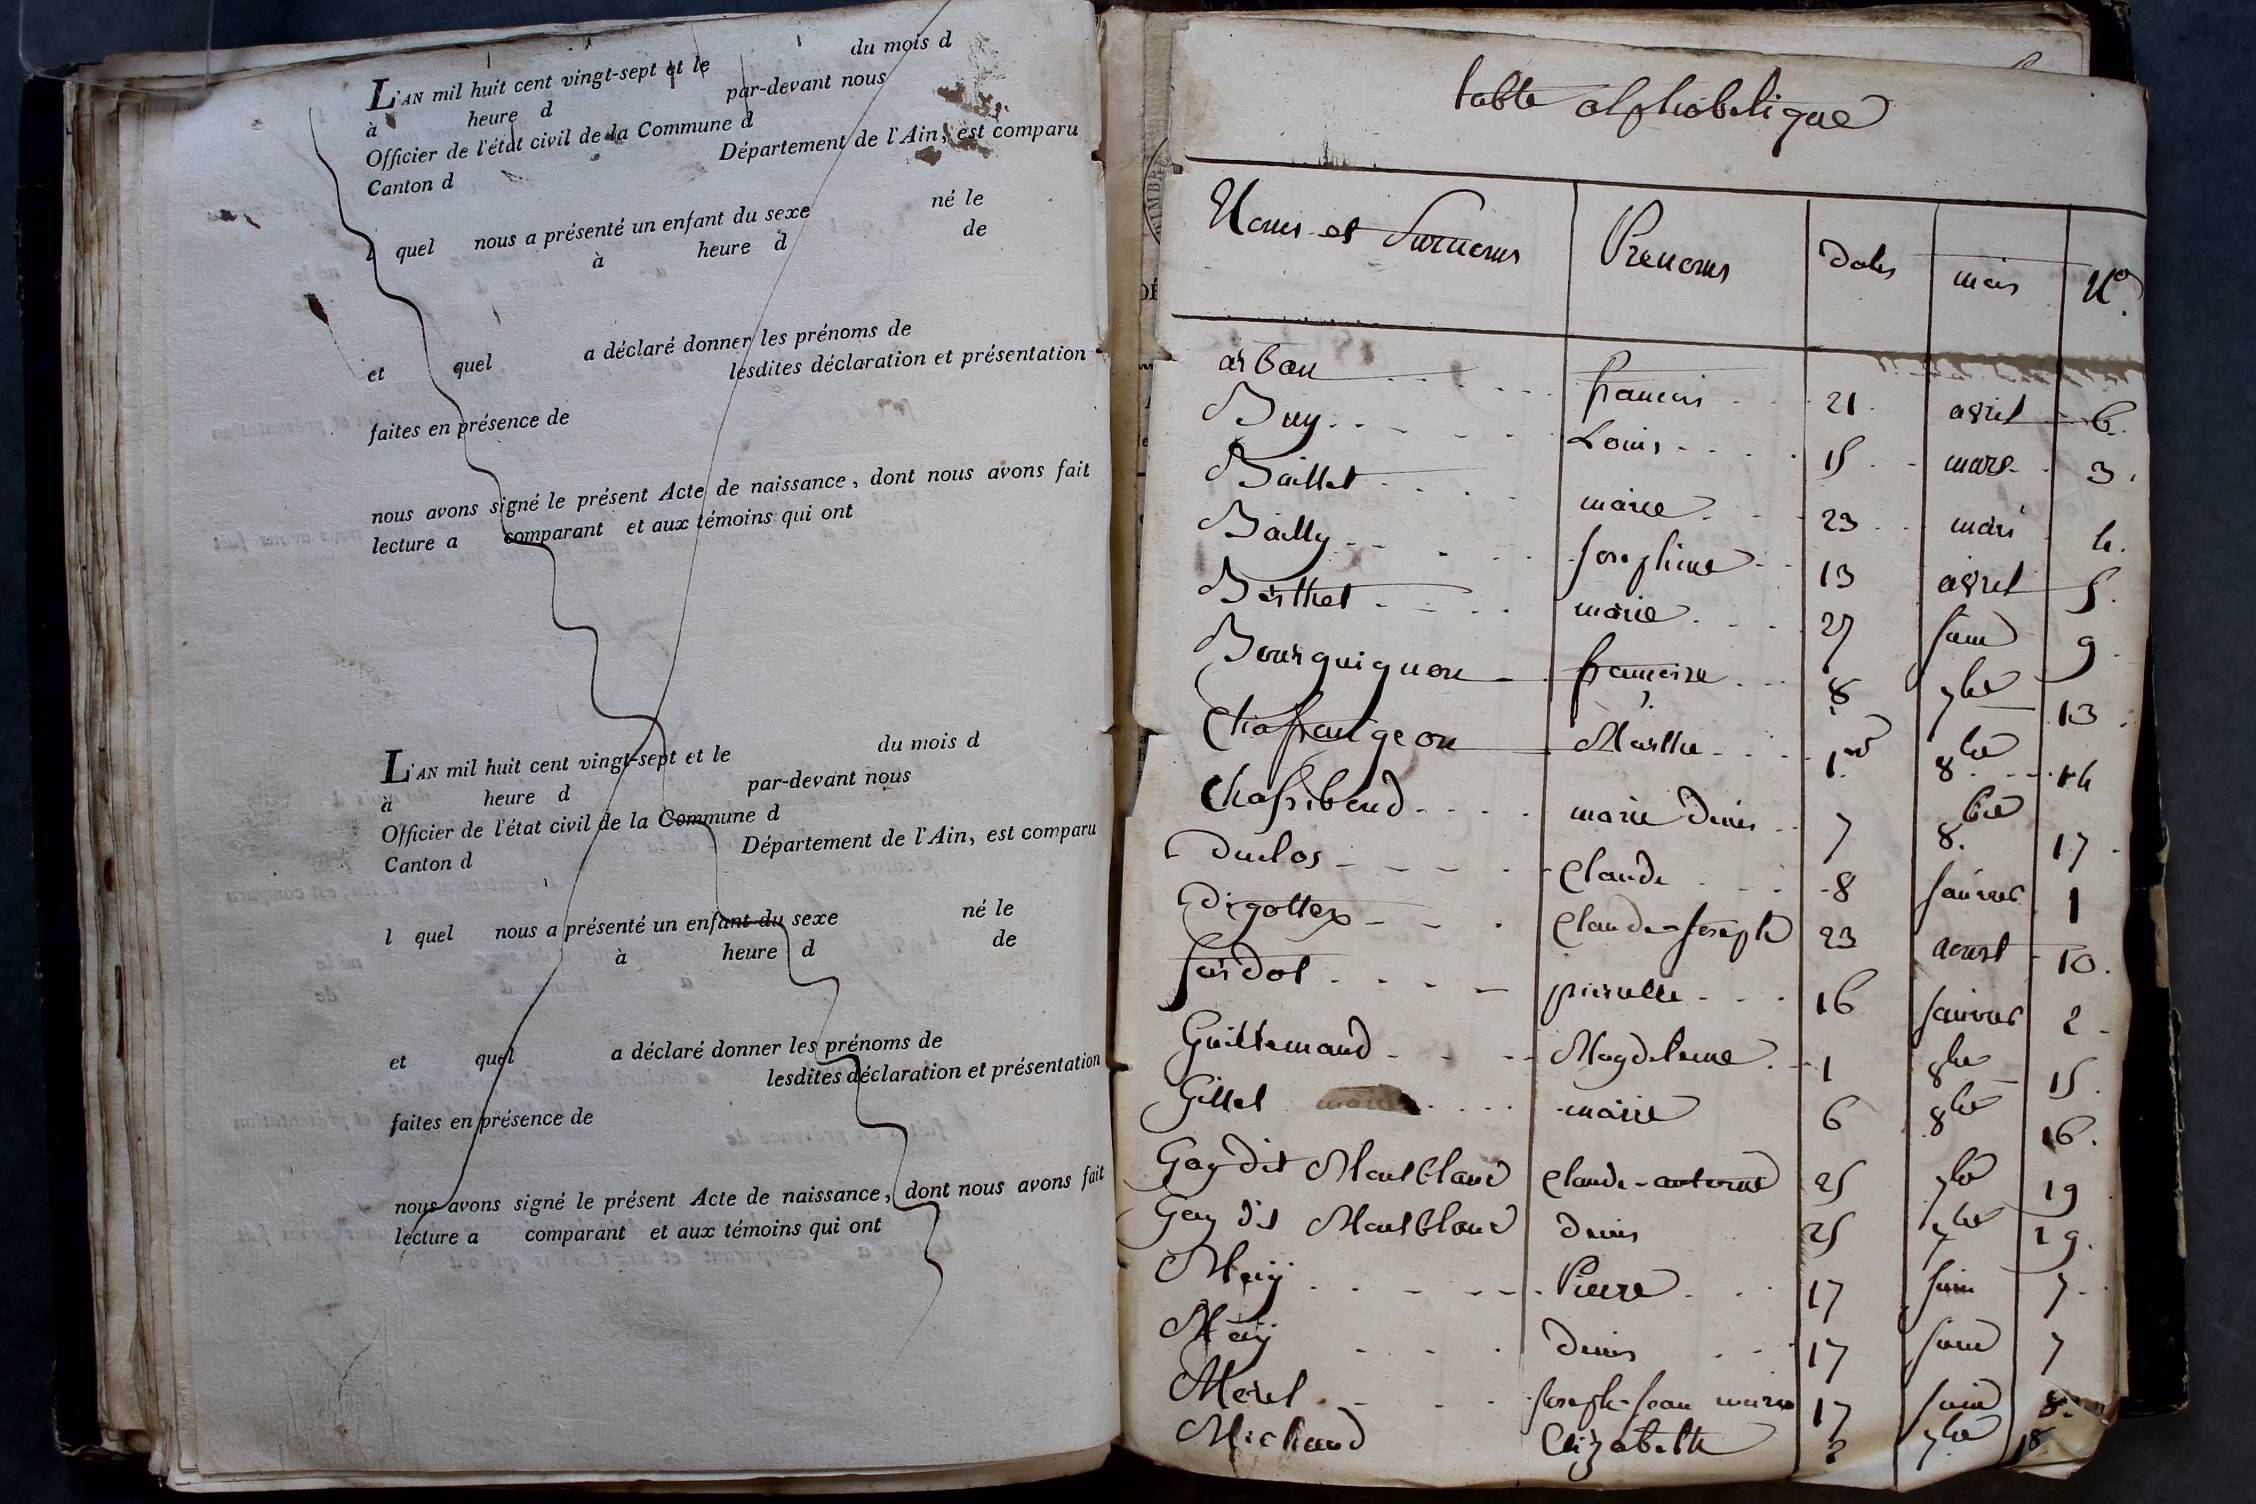 L'AN mil huit cent vingt-sept et le du mois d
à heure d par-devant nous
Officier de l'état civil de la Commune d
Canton d Département de l'Ain, est comparu
l quel nous a présenté un enfant du sexe né le
à heure d de
et quel a déclaré donner les prénoms de
lesdites déclaration et présentation
faites en présence de
nous avons signé le présent Acte de naissance, dont nous avons fait
lecture a comparant et aux témoins qui ont
L'AN mil huit cent vingt-sept et le du mois d
à heure d par-devant nous
Officier de l'état civil de la Commune d
Canton d Département de l'Ain, est comparu
l quel nous a présenté un enfant du sexe né le
à heure d de
et quel a déclaré donner les prénoms de
lesdites déclaration et présentation
faites en présence de
nous avons signé le présent Acte de naissance, dont nous avons fait
lecture a comparant et aux témoins qui ont
table alphabetique
Noms et Surnoms Prenoms Dates mois No.
arban francois 21 avril 6
Buy Louis 15 mars 3
Baillet marie 23 mars 4
Bailly Josephine 13 avril 5
Berthet marie 27 Juin 9
Bourguignon francoise 8 7bre 13
Chafrangeon Marthe 1er 8bre 14
Chassiboud marie Denis 7 8bre 17
Duclos Claude 8 Janvier 1
Digottex Claude-Joseph 23 aoust 10
Jardot pierrette 16 Janvier 2
Guillemaud Magdeleine 1 8bre 15
Gillet marie 6 8bre 16
Gay dit Montblanc Claude-antoine 25 9bre 19
Gay dit Montblanc Denis 25 9bre 19
Pierre 17 Juin 7
Denis 17 Juin 7
Morel Joseph-Jean marie 17 Juin 8
Michaud Elizabeth 9bre 18